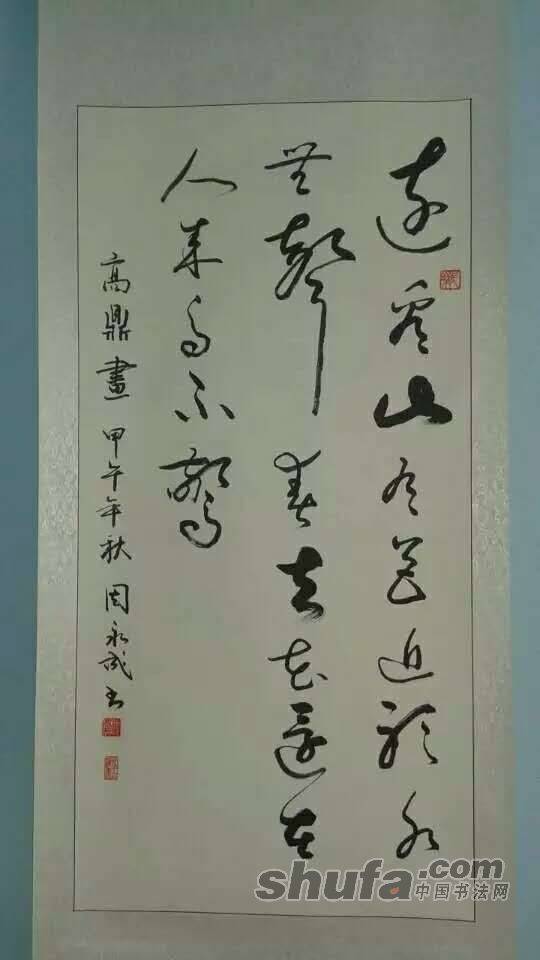 遠看山有色近聽水
無聲春去花還在
人來鳥不驚
高鼎畫 甲午年秋 周永成书
shufa.com
中国书法网